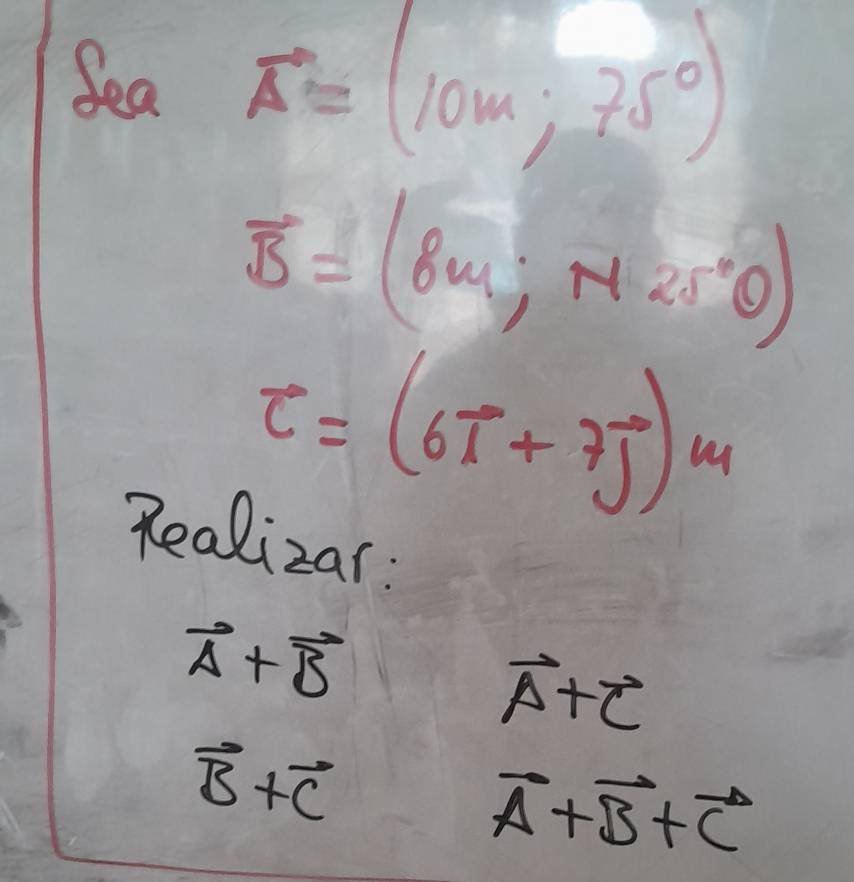 Sea A⃗ = (10m; 75°)
B⃗ = (8m; N 25°O)
C⃗ = (6i⃗ + 7j⃗) m
Realizar:
A⃗ + B⃗
A⃗ + C⃗
B⃗ + C⃗
A⃗ + B⃗ + C⃗